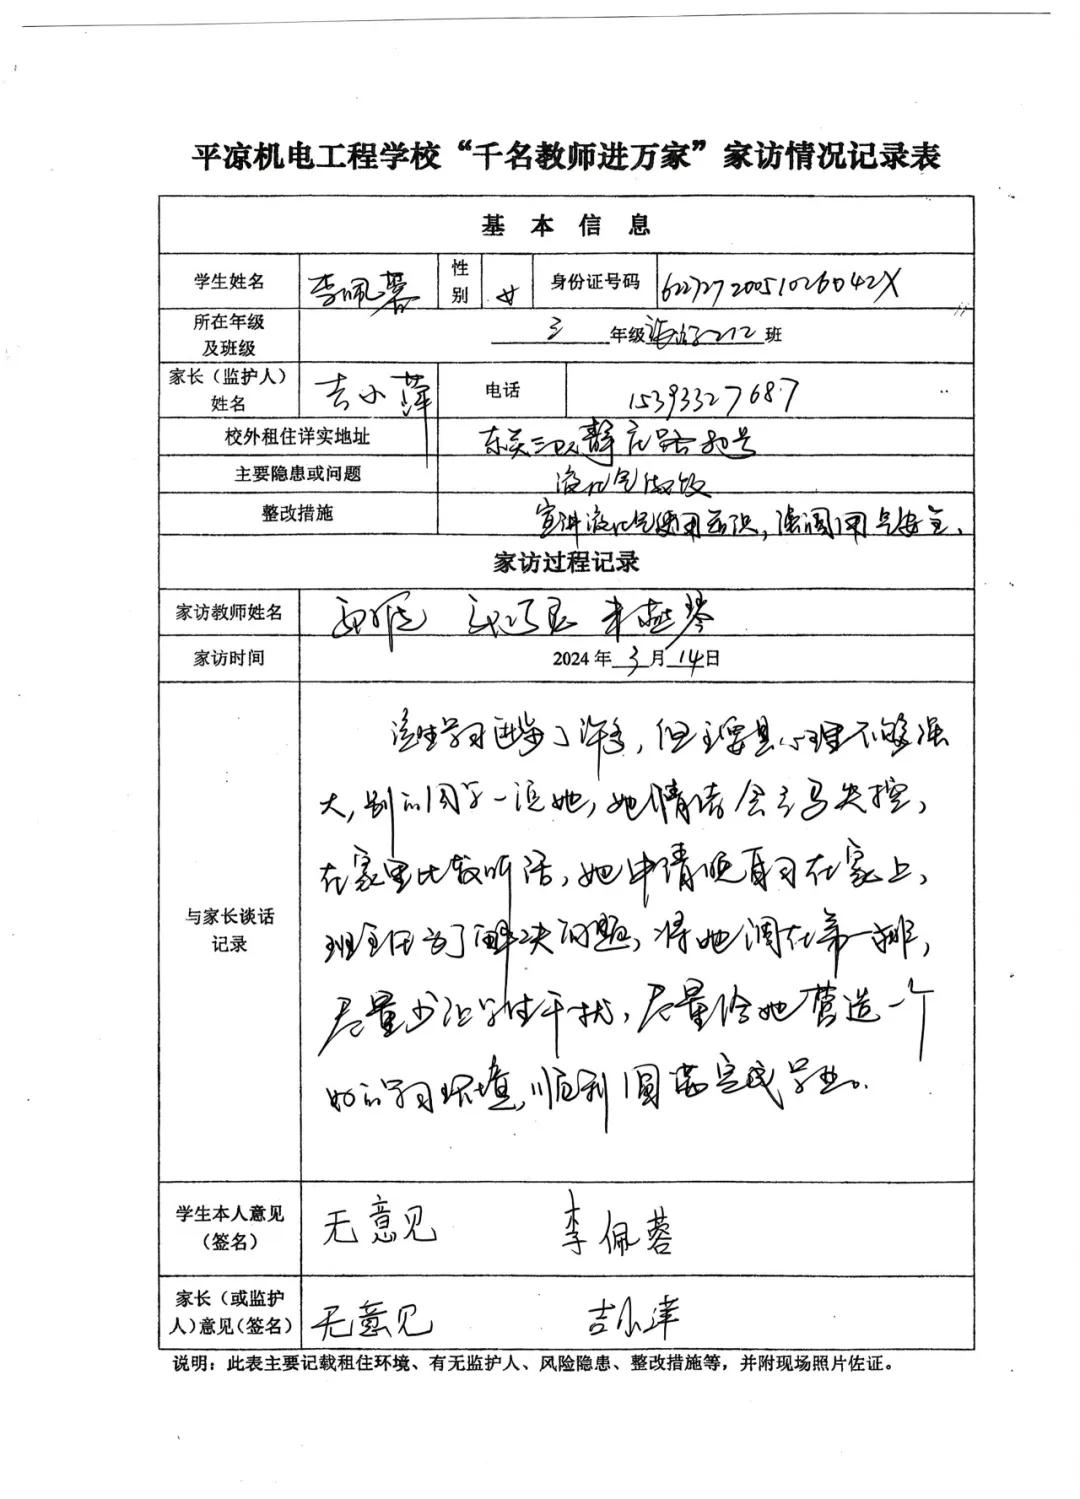 平凉机电工程学校“千名教师进万家”家访情况记录表
基 本 信 息
学生姓名 李佩蓉 性别 女 身份证号码 62272720051026042X
所在年级及班级 三 年级 212 班
家长（监护人）姓名 吉小萍 电话 15393327687
校外租住详实地址 东关
主要隐患或问题 液化气做饭
整改措施 宣讲液化气使用知识，强调用气安全。
家访过程记录
家访教师姓名
家访时间 2024 年 3 月 14 日
与家长谈话记录
该生学习进步了许多，但主要是心理不够强
大，别的同学一逗她，她情绪会立马失控，
在家里比较听话，她申请晚自习在家上，
班主任为了解决问题，将她调在第一排，
尽量少让学生干扰，尽量给她营造一个
好的学习环境，顺利圆满完成学业。
学生本人意见（签名） 无意见 李佩蓉
家长（或监护人）意见（签名） 无意见 吉小萍
说明：此表主要记载租住环境、有无监护人、风险隐患、整改措施等，并附现场照片佐证。